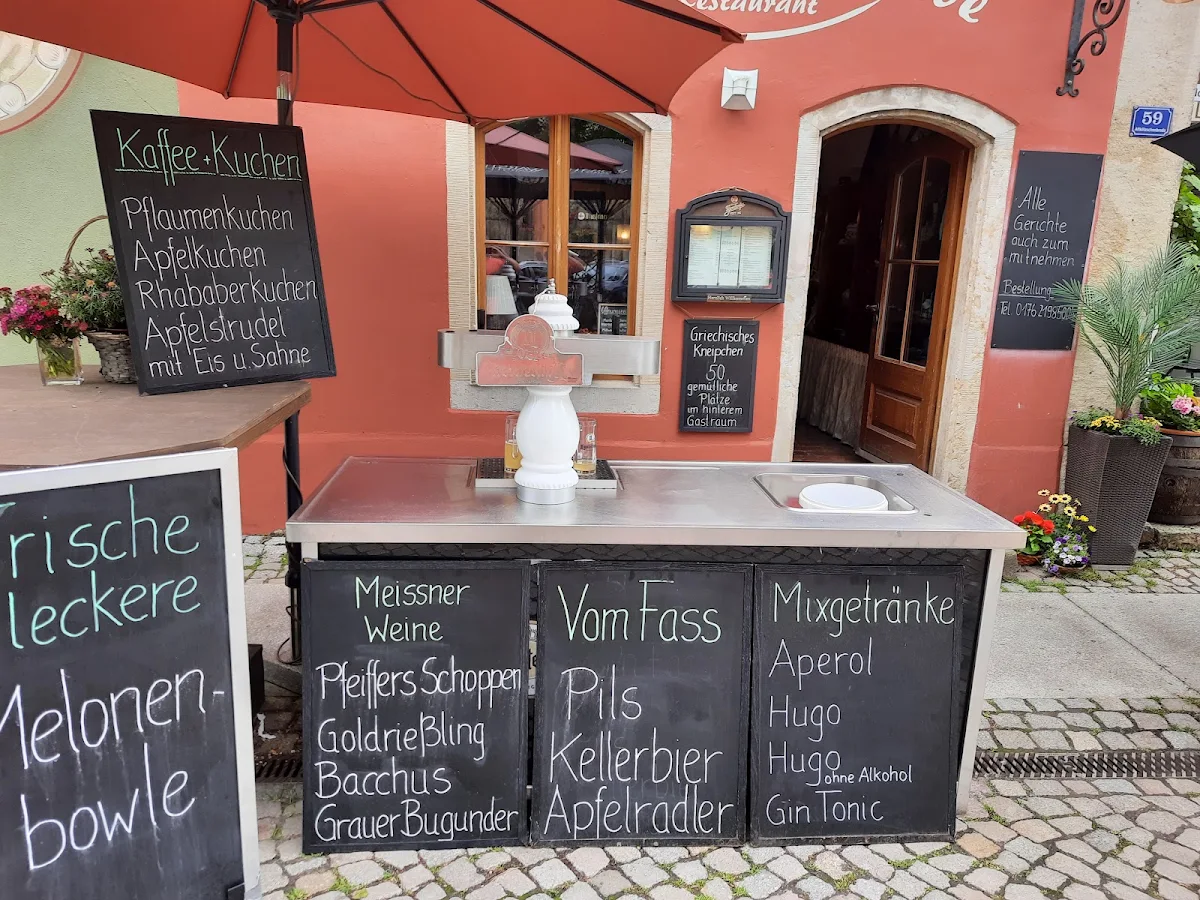 Restaurant
Kaffee+Kuchen
Pflaumenkuchen
Apfelkuchen
Rhababerkuchen
Apfelstrudel
mit Eis u. Sahne
59
Alle
Gerichte
auch zum
mitnehmen
Bestellung
Herzlich Willkommen
Griechisches
Kneipchen
50
gemütliche
Plätze
im hinterem
Gastraum
Frische
leckere
Melonen-
bowle
Meissner
Weine
Pfeiffers Schoppen
Goldrießling
Bacchus
Grauer Bugunder
Vom Fass
Pils
Kellerbier
Apfelradler
Mixgetränke
Aperol
Hugo
Hugo
ohne Alkohol
Gin Tonic